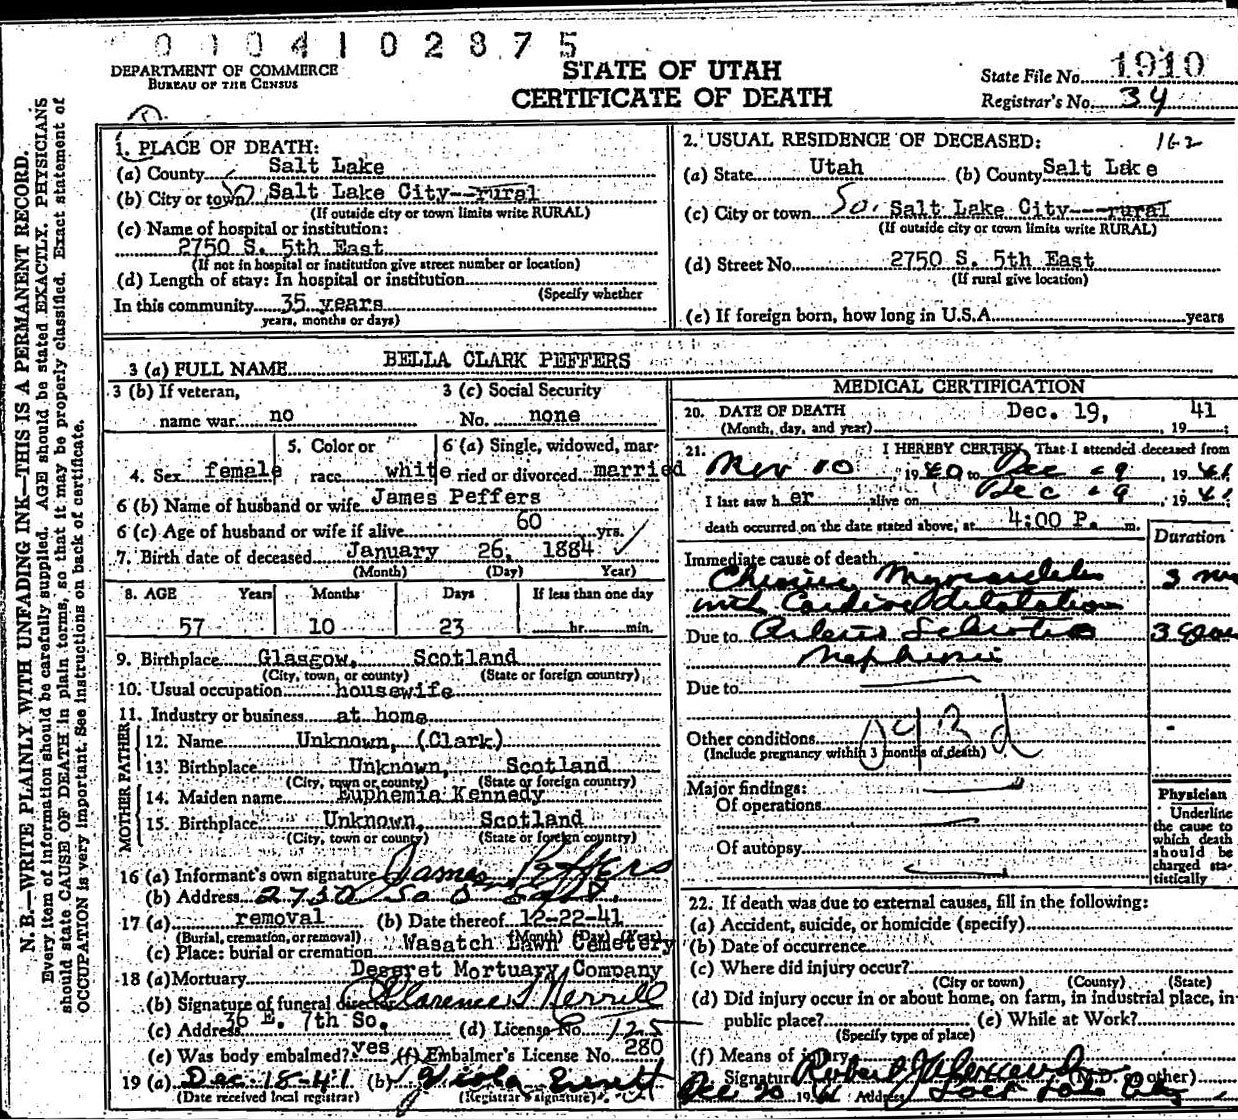 0004102875
DEPARTMENT OF COMMERCE
BUREAU OF THE CENSUS
STATE OF UTAH
CERTIFICATE OF DEATH
State File No. 1910
Registrar's No. 34
N. B.—WRITE PLAINLY WITH UNFADING INK—THIS IS A PERMANENT RECORD.
Every item of information should be carefully supplied. AGE should be stated EXACTLY. PHYSICIANS
should state CAUSE OF DEATH in plain terms, so that it may be properly classified. Exact statement of
OCCUPATION is very important. See instructions on back of certificate.
1. PLACE OF DEATH:
(a) County Salt Lake
(b) City or town Salt Lake City--rural
(If outside city or town limits write RURAL)
(c) Name of hospital or institution:
2750 S. 5th East
(If not in hospital or institution give street number or location)
(d) Length of stay: In hospital or institution
(Specify whether
In this community 35 years
years, months or days)
2. USUAL RESIDENCE OF DECEASED: 162
(a) State Utah (b) County Salt Lake
(c) City or town So. Salt Lake City---rural
(If outside city or town limits write RURAL)
(d) Street No. 2750 S. 5th East
(If rural give location)
(e) If foreign born, how long in U.S.A. years
3 (a) FULL NAME BELLA CLARK PEFFERS
3 (b) If veteran, 3 (c) Social Security
name war no No. none
5. Color or 6 (a) Single, widowed, mar-
4. Sex female race white ried or divorced married
6 (b) Name of husband or wife James Peffers
6 (c) Age of husband or wife if alive 60 yrs.
7. Birth date of deceased January 26, 1884
(Month) (Day) Year)
8. AGE Years Months Days If less than one day
57 10 23 hr. min.
9. Birthplace Glasgow, Scotland
(City, town, or county) (State or foreign country)
10. Usual occupation housewife
11. Industry or business at home
FATHER
12. Name Unknown, (Clark)
13. Birthplace Unknown, Scotland
(City, town or county) (State or foreign country)
MOTHER
14. Maiden name Euphemia Kennedy
15. Birthplace Unknown, Scotland
(City, town or county) (State or foreign country)
16 (a) Informant's own signature James Peffers
(b) Address 2750 So 5 East
17 (a) removal (b) Date thereof 12-22-41
(Burial, cremation, or removal) (Month) (Day) (Year)
(c) Place: burial or cremation Wasatch Lawn Cemetery
18 (a) Mortuary Deseret Mortuary Company
(b) Signature of funeral director Clarence Merrill
(c) Address 36 E. 7th So. (d) License No. 125
(e) Was body embalmed? yes (f) Embalmer's License No. 280
19 (a) Dec-18-41 (b) Viola
(Date received local registrar) (Registrar's signature)
MEDICAL CERTIFICATION
20. DATE OF DEATH Dec. 19, 41
(Month, day, and year) , 19 ;
21. I HEREBY CERTIFY, That I attended deceased from
Nov 10 1940 to Dec 19, 1941
I last saw her alive on Dec 19, 1941
death occurred on the date stated above, at 4:00 P. m.
Duration
Immediate cause of death
Chronic Myocarditis
with Cardiac dilatation
Due to Arterio Sclerotic 3 years
Due to
Other conditions
(Include pregnancy within 3 months of death)
Major findings:
Of operations
Of autopsy
Physician
Underline
the cause to
which death
should be
charged sta-
tistically
22. If death was due to external causes, fill in the following:
(a) Accident, suicide, or homicide (specify)
(b) Date of occurrence
(c) Where did injury occur?
(City or town) (County) (State)
(d) Did injury occur in or about home, on farm, in industrial place, in
public place? (e) While at Work?
(Specify type of place)
(f) Means of injury
Signature Robert J. (M.D. or other)
Dec 20 1941 Address Salt Lake City